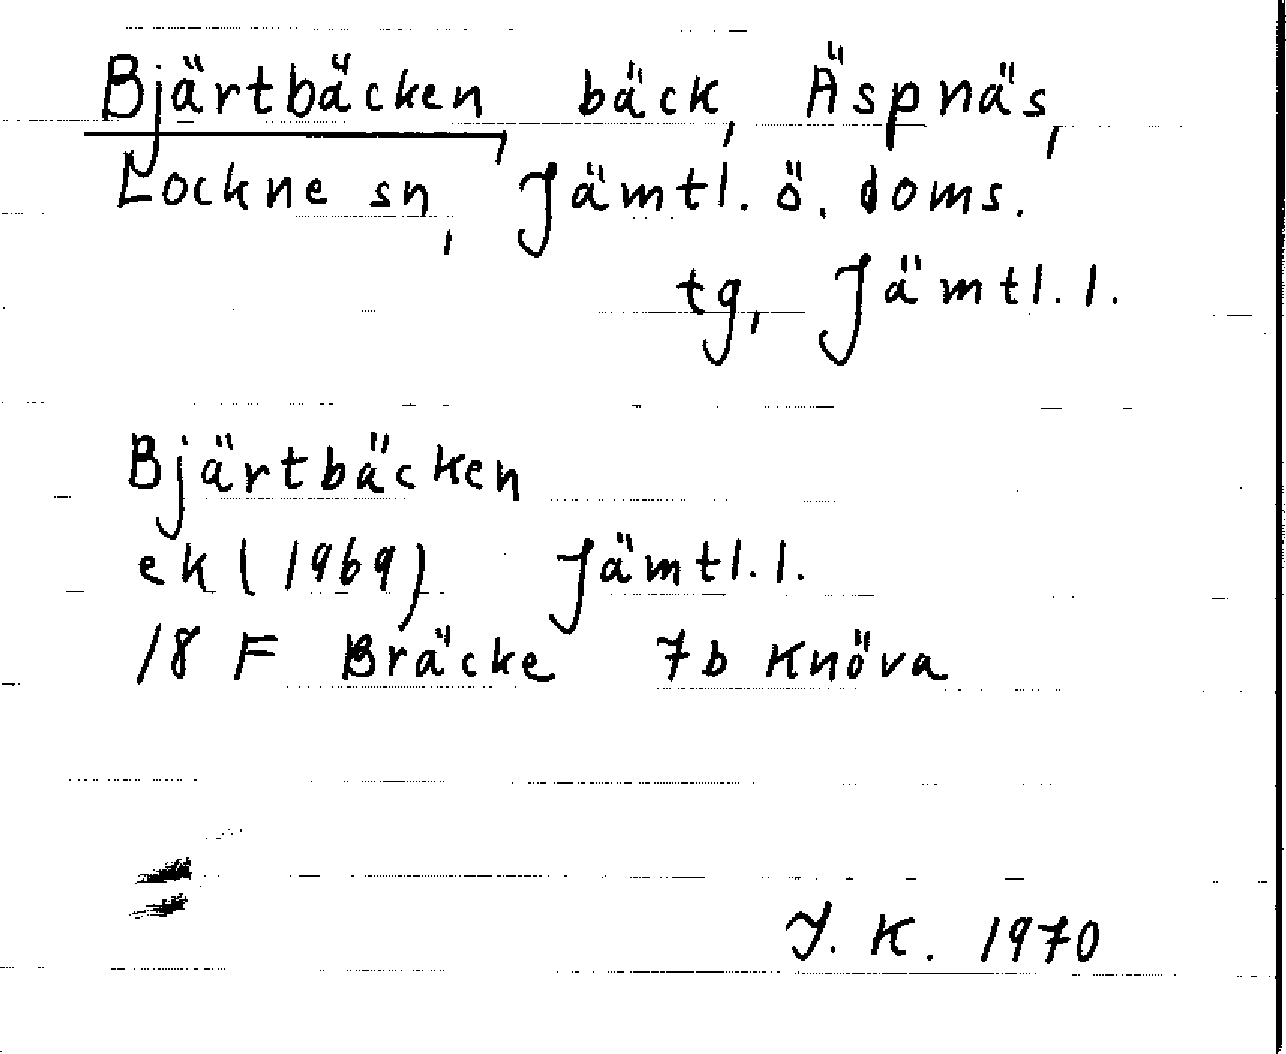 Bjärtbäcken, bäck, Äspnäs,
Lockne sn, Jämtl. ö. doms.
tg, Jämtl. l.
Bjärtbäcken
ek (1969) Jämtl. l.
18 F Bräcke 7b Knöva
Y. K. 1970